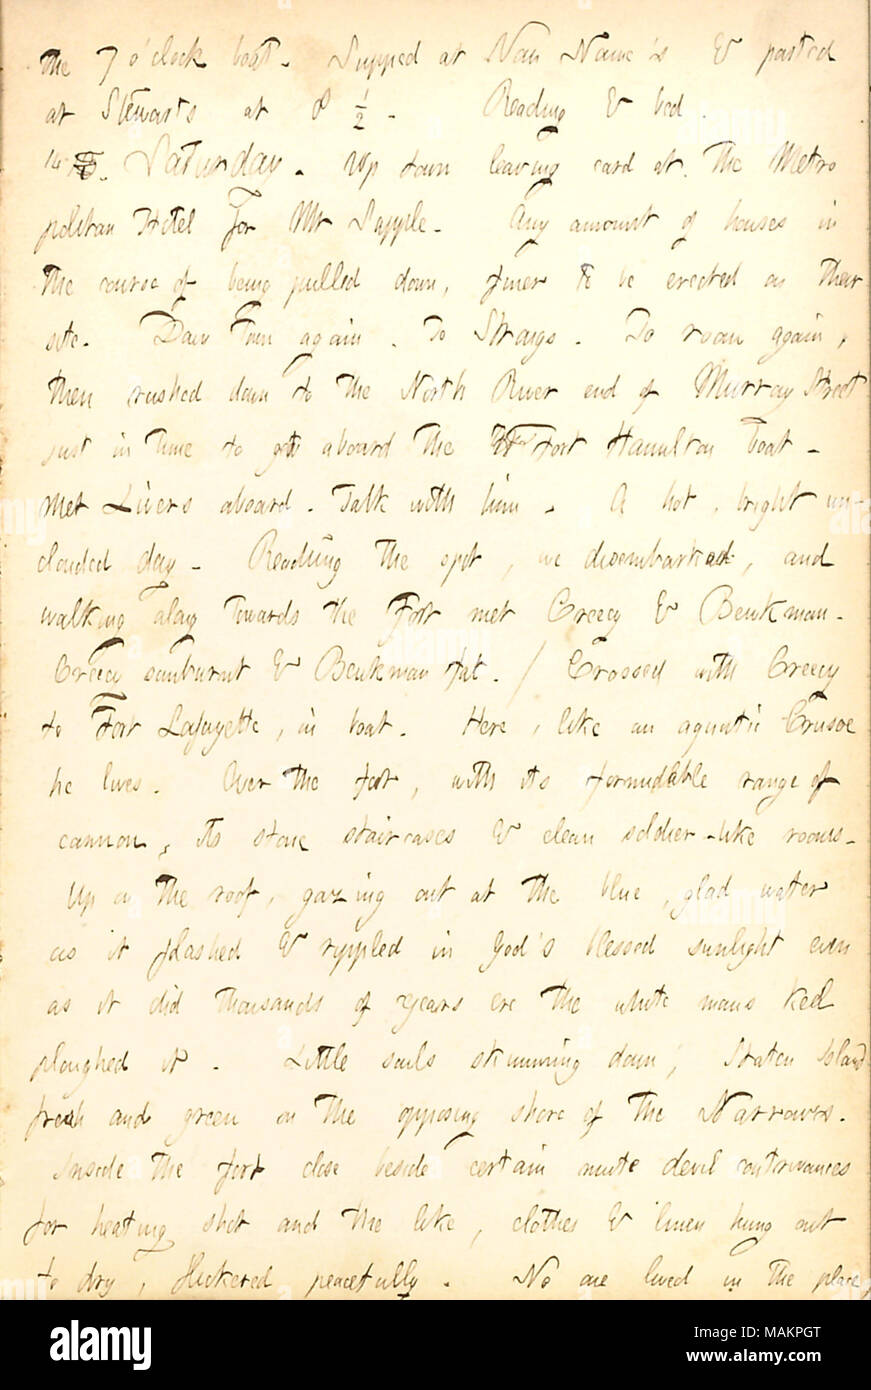 the 7 o'clock boat. Supped at Van Name's & parted
at Stewarts at 8 ½. Reading & bed.
14. Saturday. Up town leaving card at the Metro
politan Hotel for Mr Sapple. Any amount of houses in
the course of being pulled down, finer to be erected on their
site. Down Town again. To Strongs. To room again,
then rushed down to the North River end of Murray Street
just in time to get aboard the Fort Hamilton boat.
Met Livers aboard. Talk with him. A hot, bright un-
clouded day. Reaching the spot, we disembarked, and
walking along towards the Fort met Creecy & Beukman.
Creecy sunburnt & Beukman fat. / Crossed with Creecy
to Fort Lafayette, in boat. Here, like an aquatic Crusoe
he lives. Over the fort, with its formidable range of
cannon, its stone staircases & clean soldier-like rooms.
Up on the roof, gazing out at the blue, glad water
as it flashed & rippled in God's blessed sunlight even
as it did thousands of years ere the white mans keel
ploughed it. Little sails skimming down, Staten Island
fresh and green on the opposing shore of the Narrows.
Inside the fort close beside certain mute devil contrivances
for heating shot and the like, clothes & linen hung out
to dry, flickered peacefully. No one lived in the place,
alamy
Image ID: MAKPGT
www.alamy.com